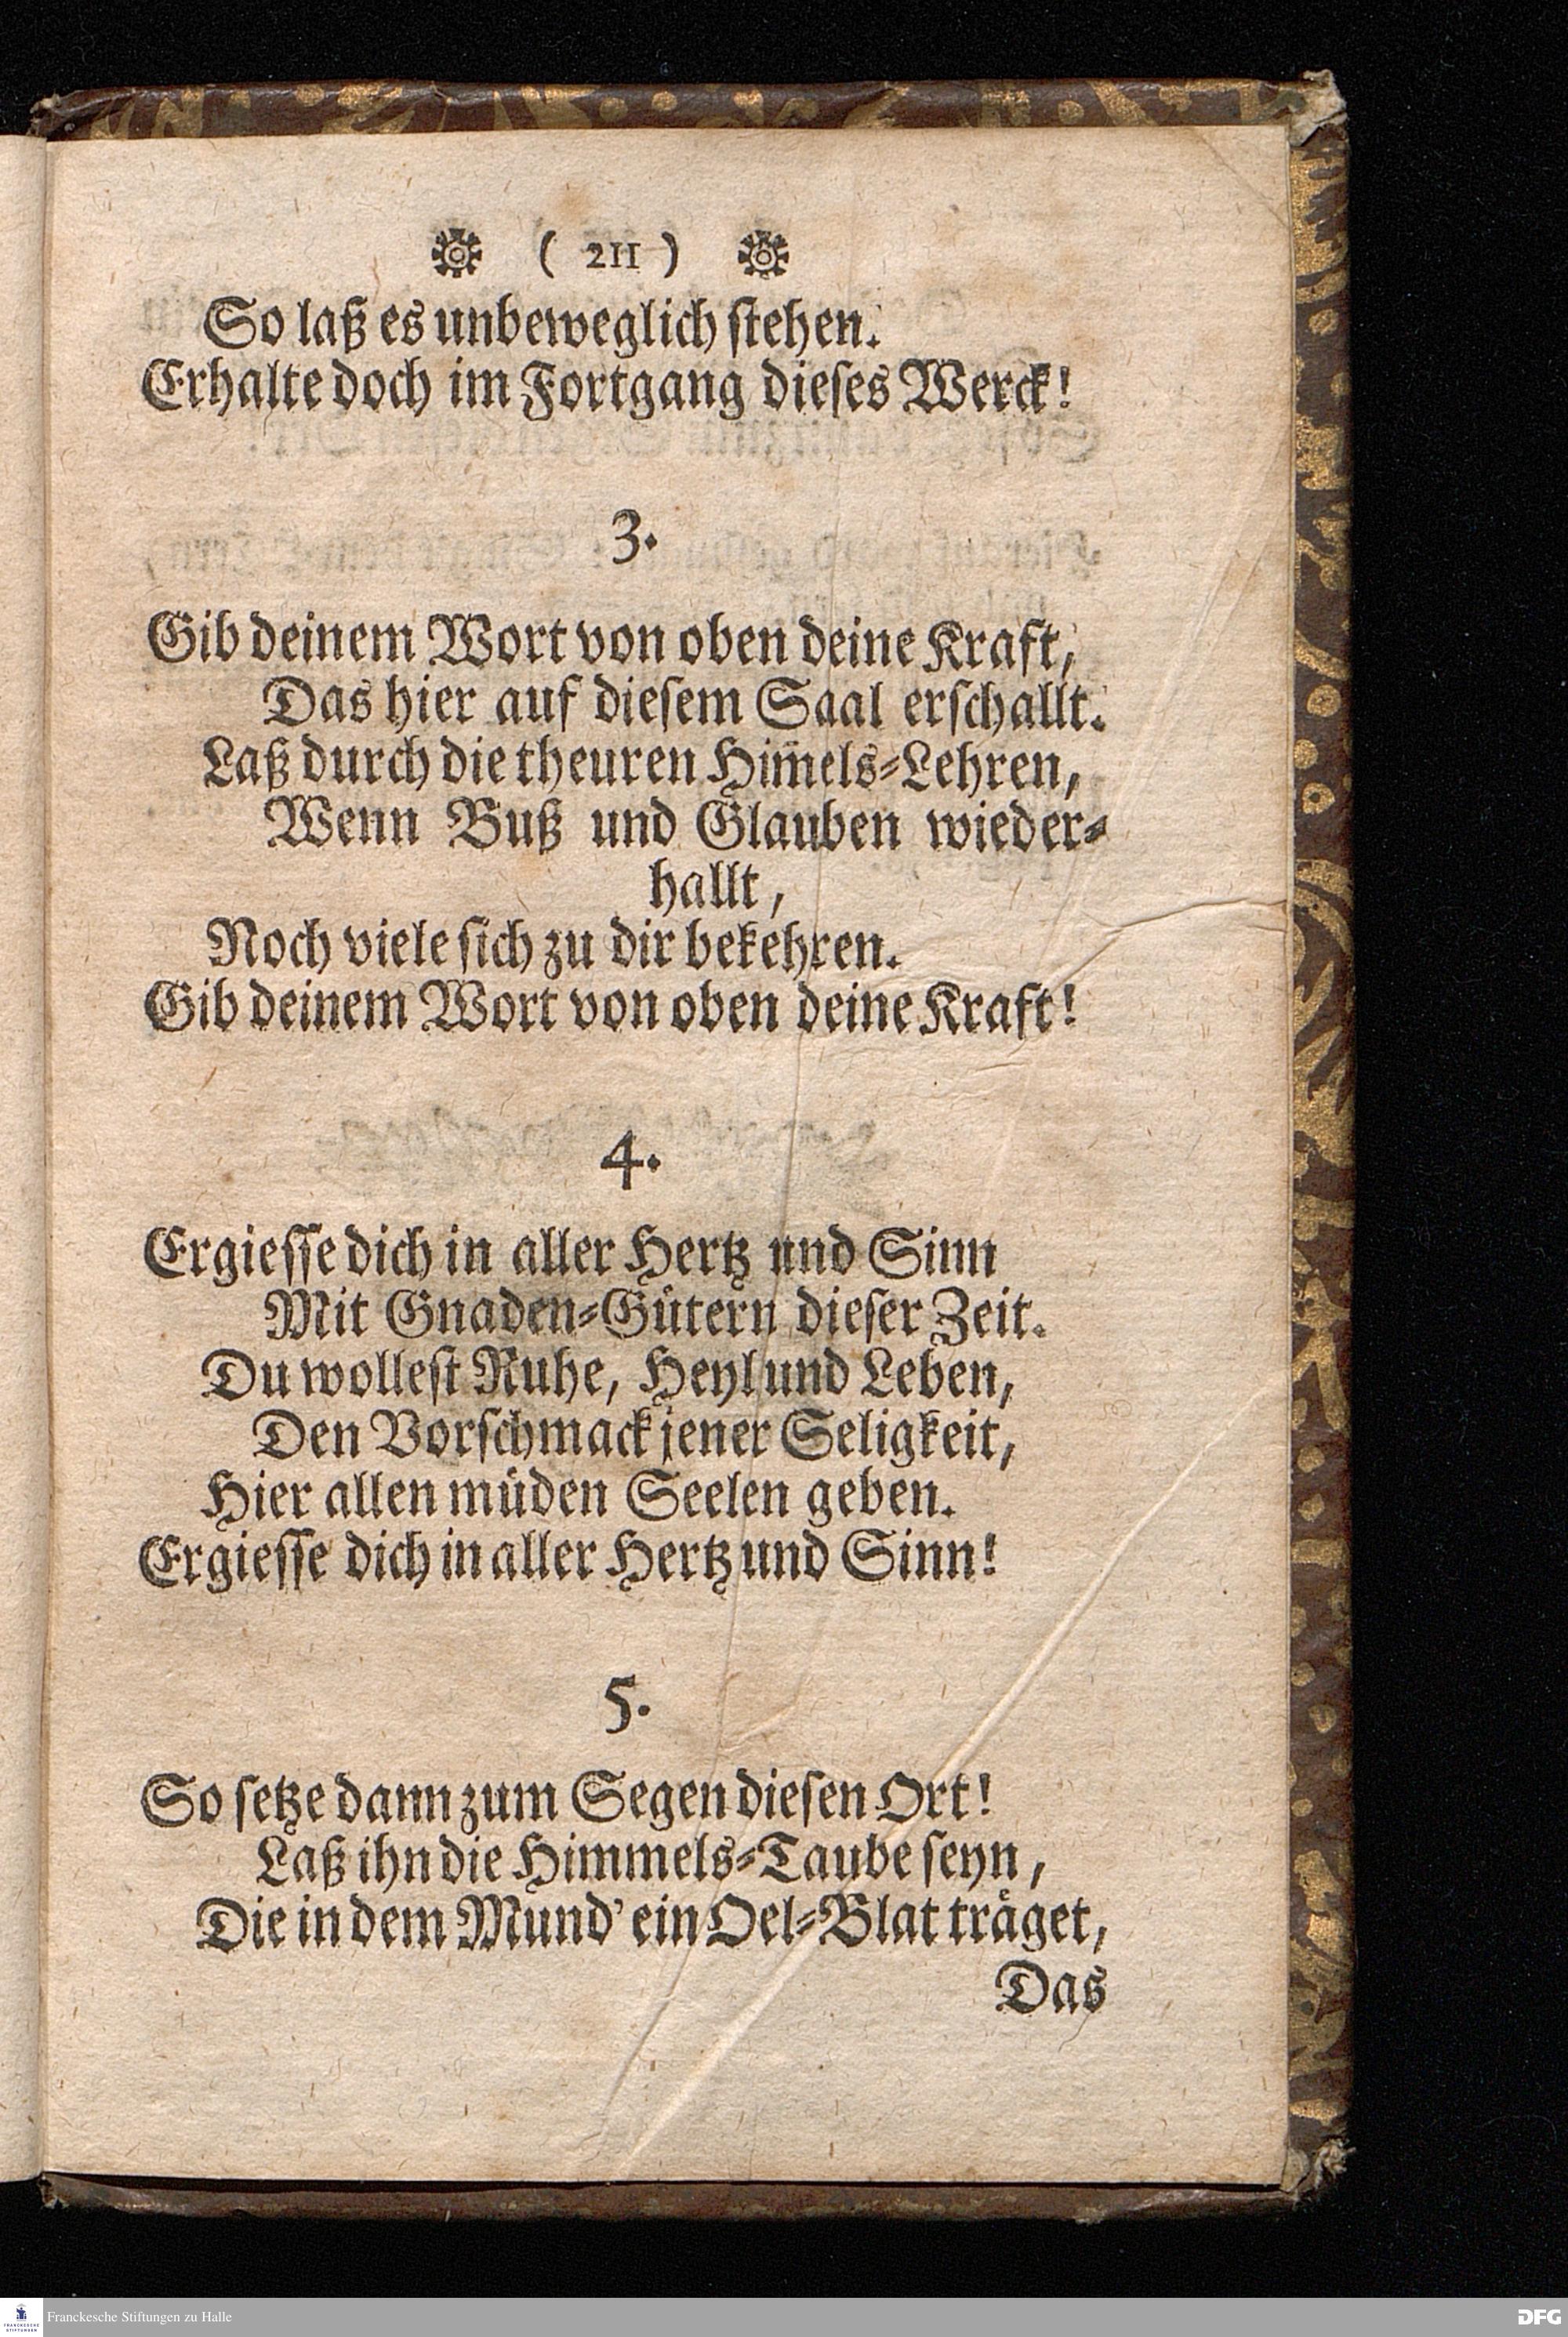 ( 211 )
So laß es unbeweglich stehen.
Erhalte doch im Fortgang dieses Werck!
3.
Gib deinem Wort von oben deine Kraft,
Das hier auf diesem Saal erschallt.
Laß durch die theuren Him̅els-Lehren,
Wenn Buß und Glauben wieder-
hallt,
Noch viele sich zu dir bekehren.
Gib deinem Wort von oben deine Kraft!
4.
Ergiesse dich in aller Hertz und Sinn
Mit Gnaden-Gütern dieser Zeit.
Du wollest Ruhe, Heyl und Leben,
Den Vorschmack jener Seligkeit,
Hier allen müden Seelen geben.
Ergiesse dich in aller Hertz und Sinn!
5.
So setze dann zum Segen diesen Ort!
Laß ihn die Himmels-Taube seyn,
Die in dem Mund' ein Oel-Blat träget,
Das
Franckesche Stiftungen zu Halle
FRANCKESCHE
STIFTUNGEN
DFG